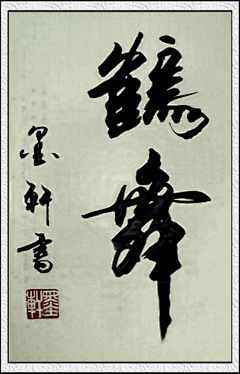 鶴舞
墨軒書
墨軒